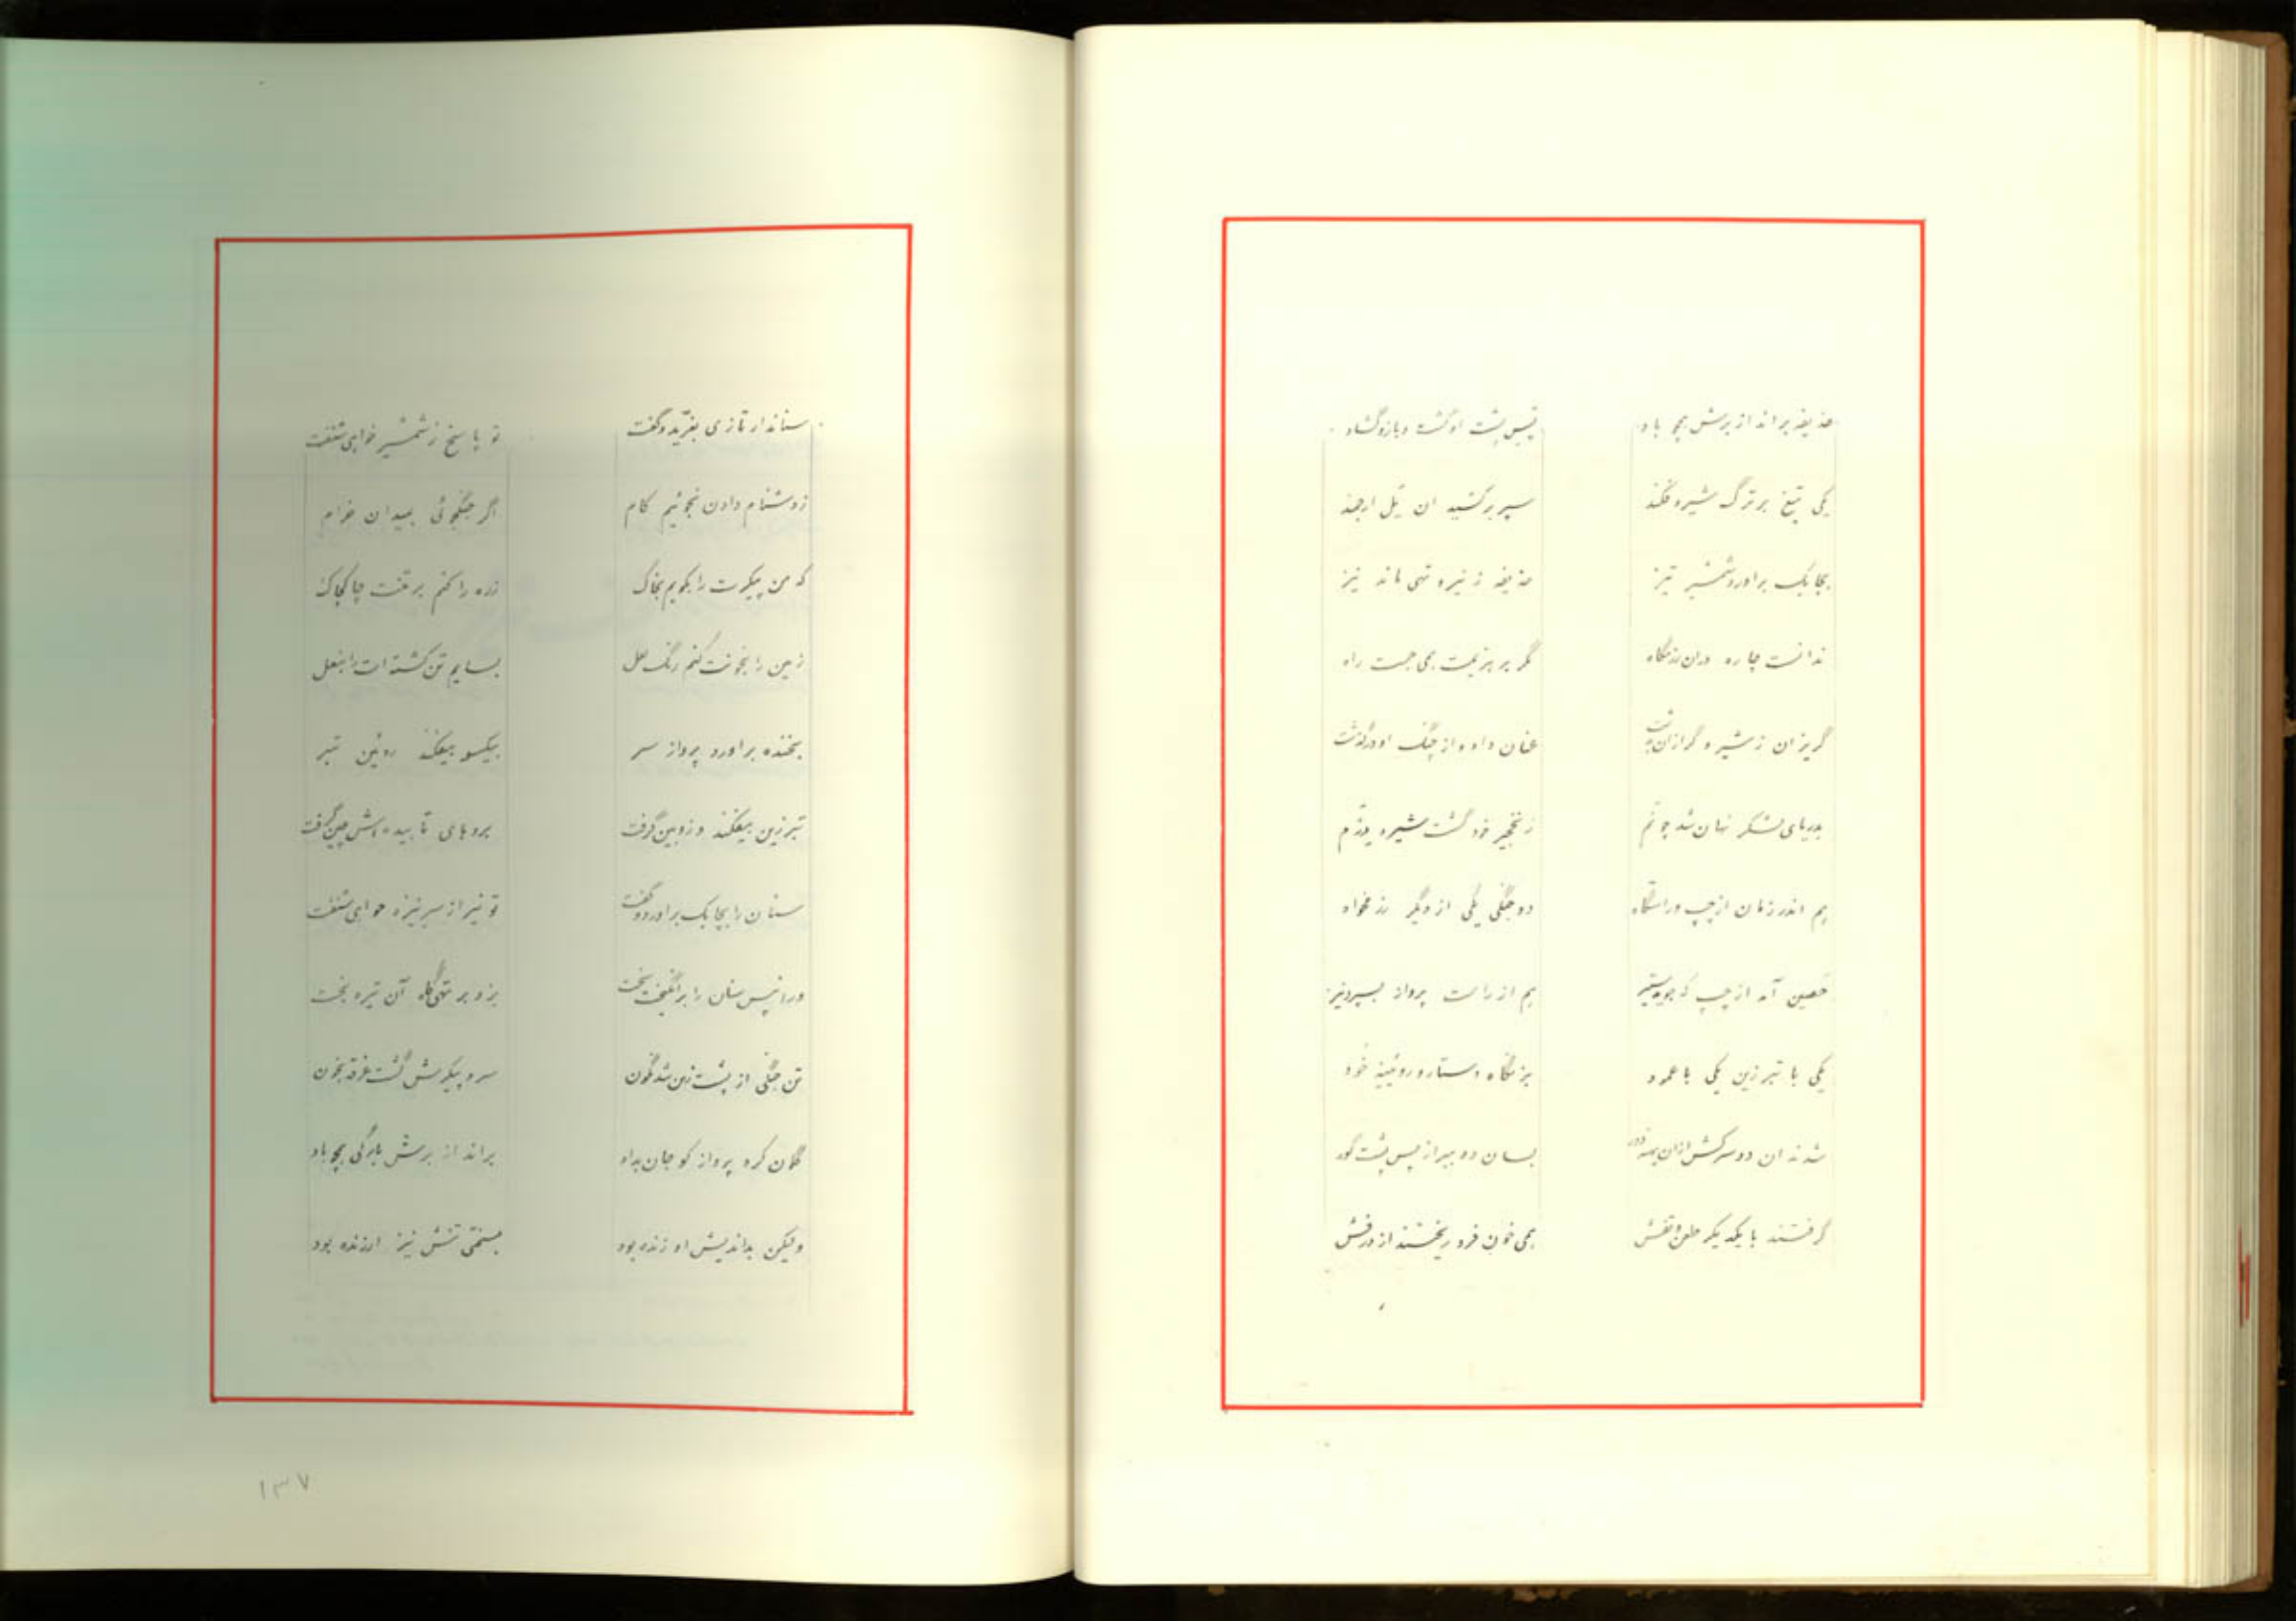 حذیفه براند از برش همچو باد پس پشت او گشت و بازو گشاد
یکی تیغ بر ترک شیرو فکند سپر برکشید ان یل ارجمند
بچابک براورد شمشیر تیز حذیفه ز نیرو تهی ماند نیز
ندانست چاره دران رزمگاه مگر بر هزیمت همی جست راه
گریزان ز شیرو گرازان عنان داد و از جنگ او درگذشت
بدریای لشکر نهان شد چو نم ز نخجیر خود گشت شیرو دژم
هم اندر زمان از چپ و راستگاه دو جنگی یکی از دگر رزمخواه
حصین آمد از چپ که جوید ستیز هم از راست پرواز بسپرد نیز
یکی با تبرزین یکی با عمود بزمگاه دستار و روئینه خود
شدند ان دو سرکش ازان بسان دو ببر از پس پشت گور
گرفتند با یکدیگر طعن همی خون فرو ریختند از درفش
سناندار تازی بغرید و گفت تو پاسخ ز شمشیر خواهی شنفت
ز دشنام دادن نجوئیم کام اگر جنگجوئی بمیدان خرام
که من پیکرت را بکوبم بخاک زره را کنم بر تنت چاکچاک
زمین را بخونت کنم رنگ لعل بسایم تن کشته ات را بنعل
بخنده براورد پرواز سر بیکسو بیفکند روئین تبر
تبرزین بیفکند و زوبین گرفت بروهای تابیده اش چین گرفت
سنان را بچابک براورد و گفت تو نیز از سر نیزه خواهی شنفت
ورا نیس سنان را برانگیخت سخت بزد بر تهیگاه آن تیره بخت
تن جنگی از پشت زین شد نگون سر و پیکرش گشت غرقه بخون
گمان کرد پرواز کو جان بداد براند از برش بارگی همچو باد
ولیکن بداندیش او زنده بود بسختی تنش نیز ارزنده بود
۱۳۷